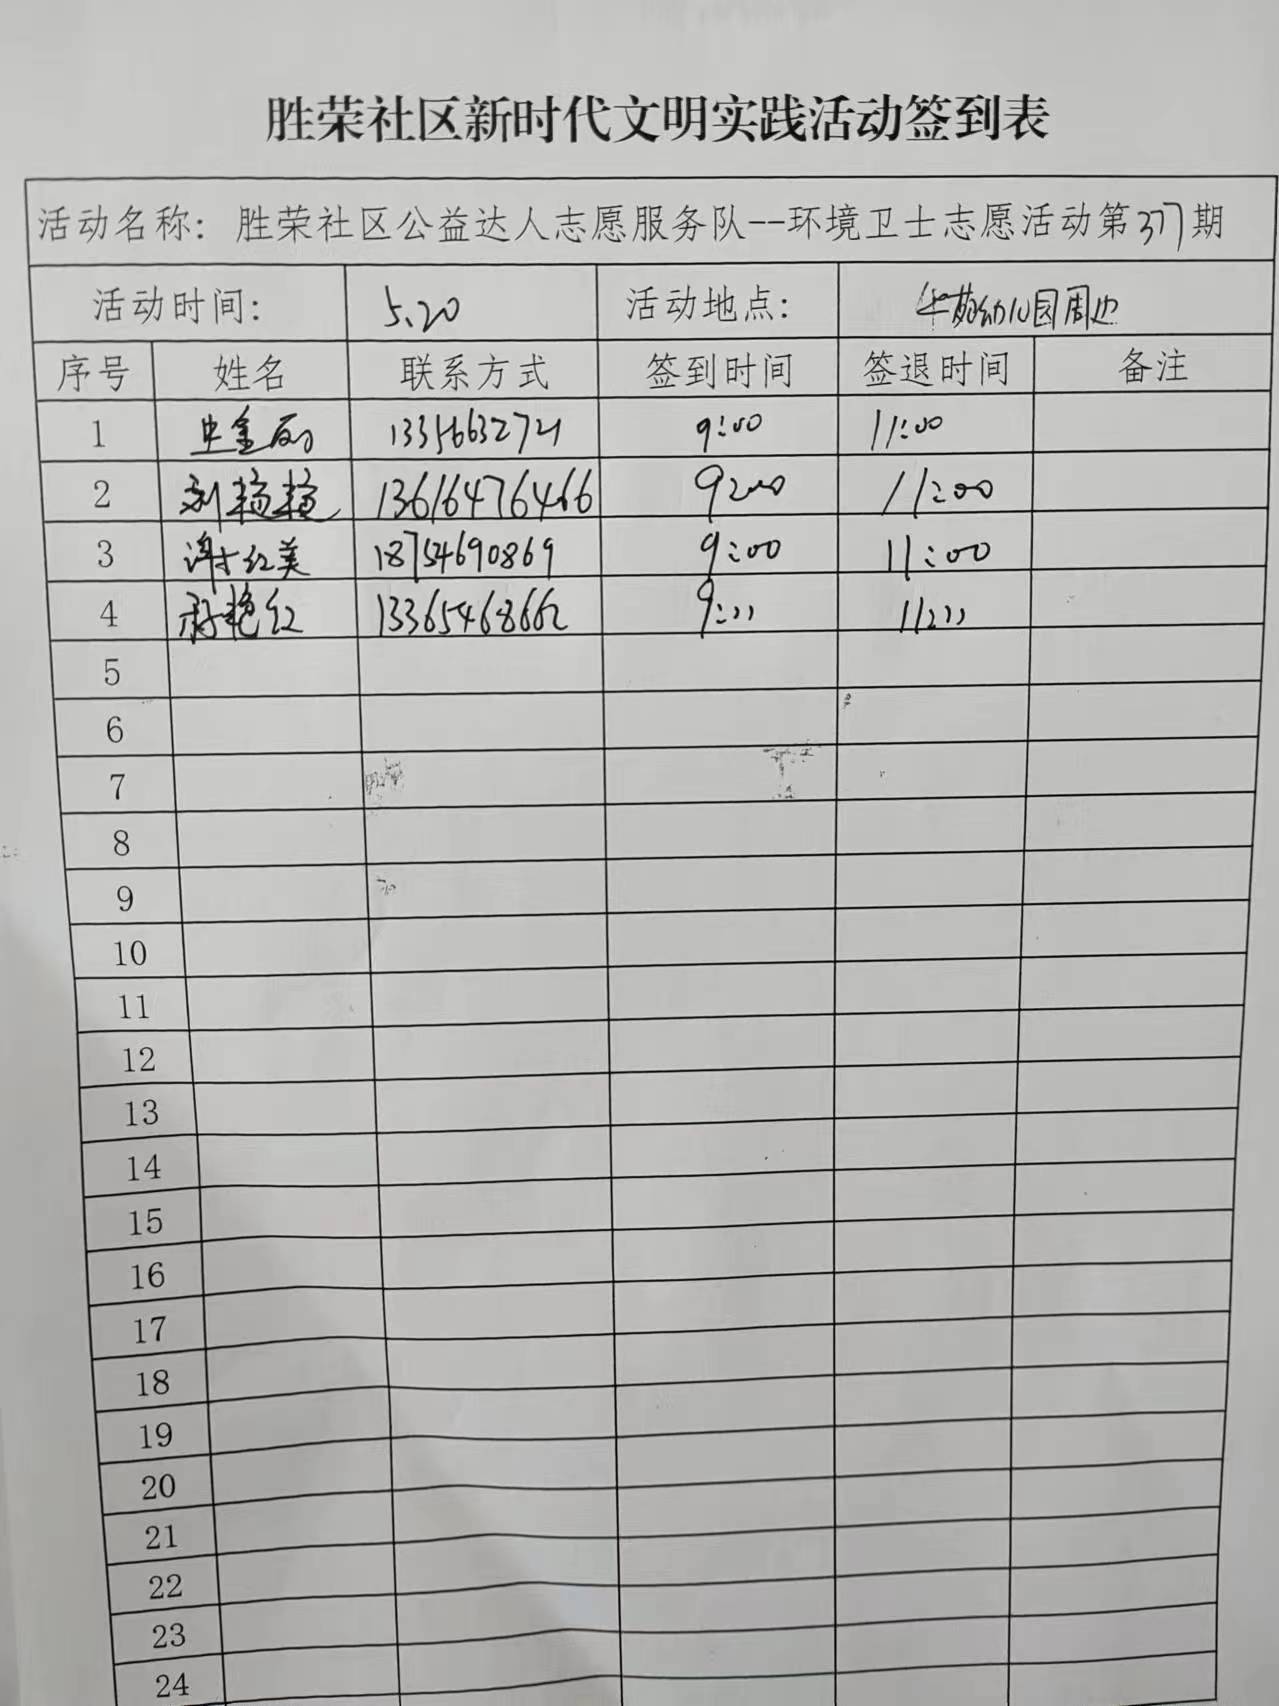 胜荣社区新时代文明实践活动签到表
活动名称：胜荣社区公益达人志愿服务队--环境卫士志愿活动第377期
活动时间： 5.20 活动地点： 幼儿园周边
序号 姓名 联系方式 签到时间 签退时间 备注
1 9:00 11:00
2 13616476466 9:00 11:00
3 谢红美 18754690869 9:00 11:00
4 艳红 13365468662 9:00 11:00
5
6
7
8
9
10
11
12
13
14
15
16
17
18
19
20
21
22
23
24